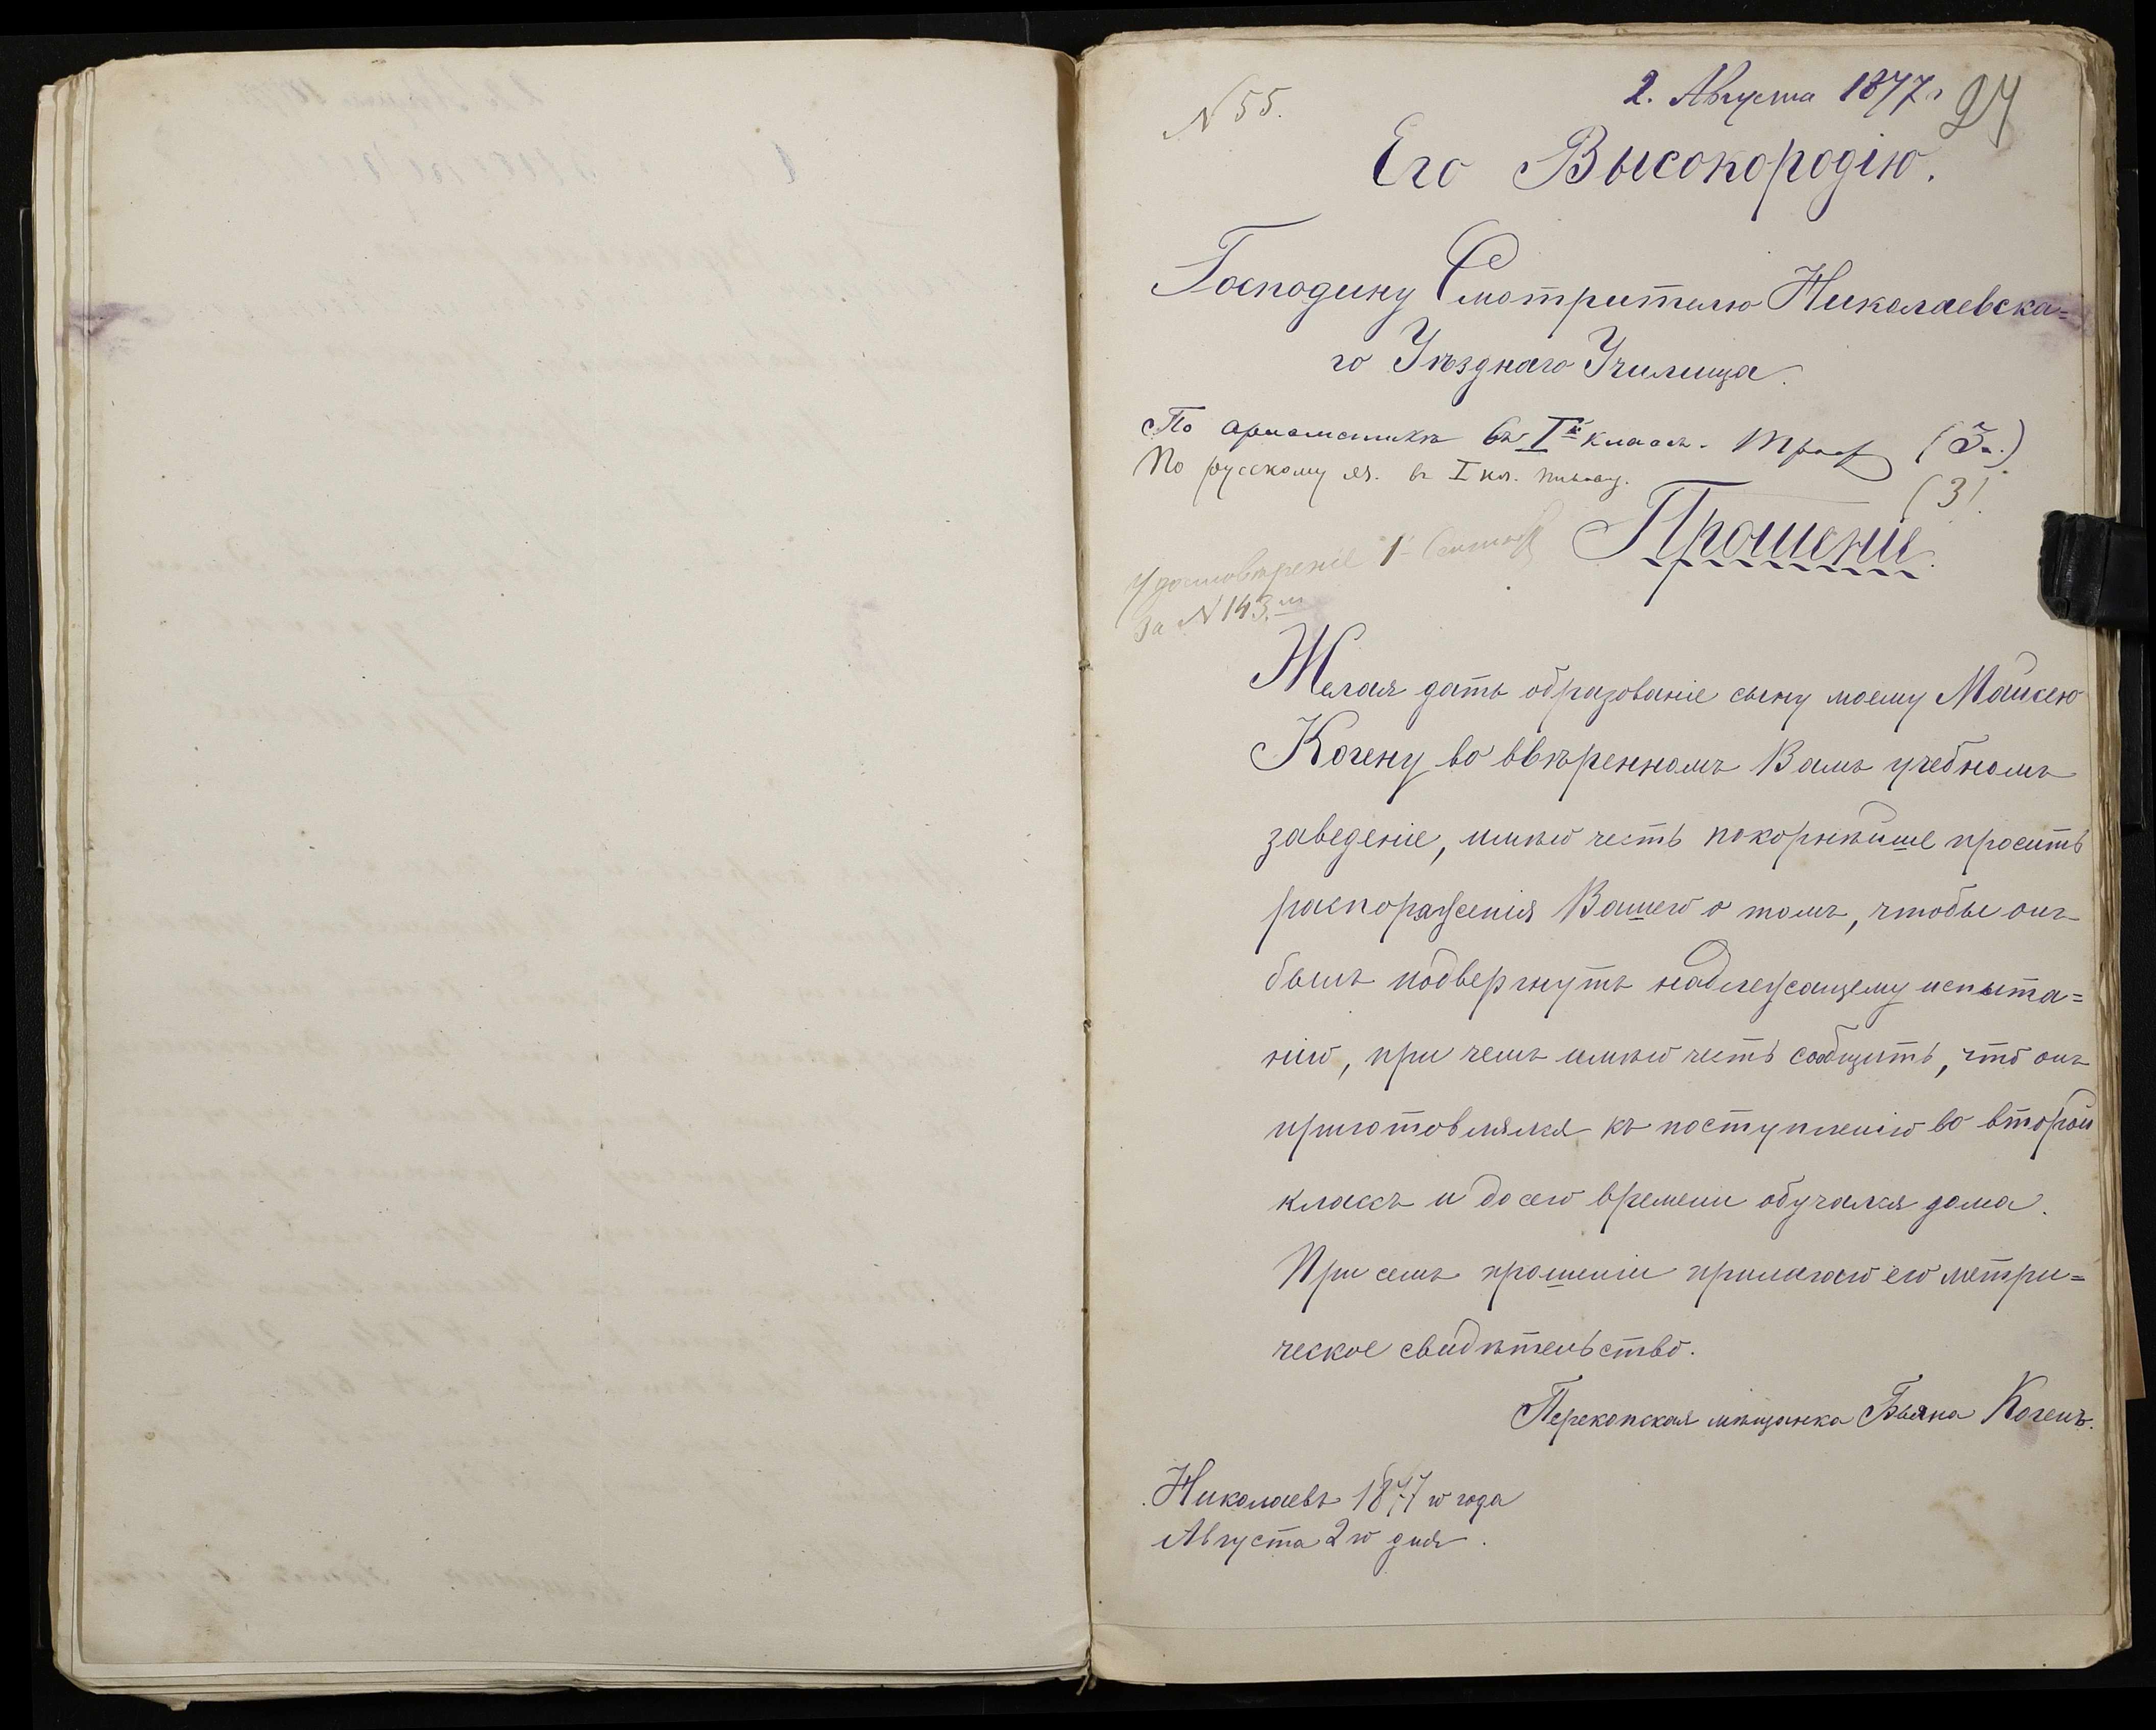 N 55.
2. Августа 1877 г
24
Его Высокородію.
Господину Смотрителю Николаевска=
го Уѣзднаго Училища.
По ариѳметикѣ въ I классъ. (3)
По русскому яз. въ I кл.
(3)
Удостовѣреніе 1
За N 143
Прошеніе.
Желая дать образованіе сыну моему Мошкею
Когену во ввѣренномъ Вамъ учебномъ
заведеніе, имѣю честь покорнѣйше просить
распоряженія Вашего о томъ, чтобы онъ
былъ подвергнутъ надлежащему испыта=
нію, при чемъ имѣю честь сообщить, что онъ
приготовлялся къ поступленію во второй
классъ и до сего времени обучался дома.
При семъ прошеніи прилагаю его метри=
ческое свидѣтельство.
Перекопская мѣщанка Коген.
Николаевъ 1877 го года
Августа 2 го дня.